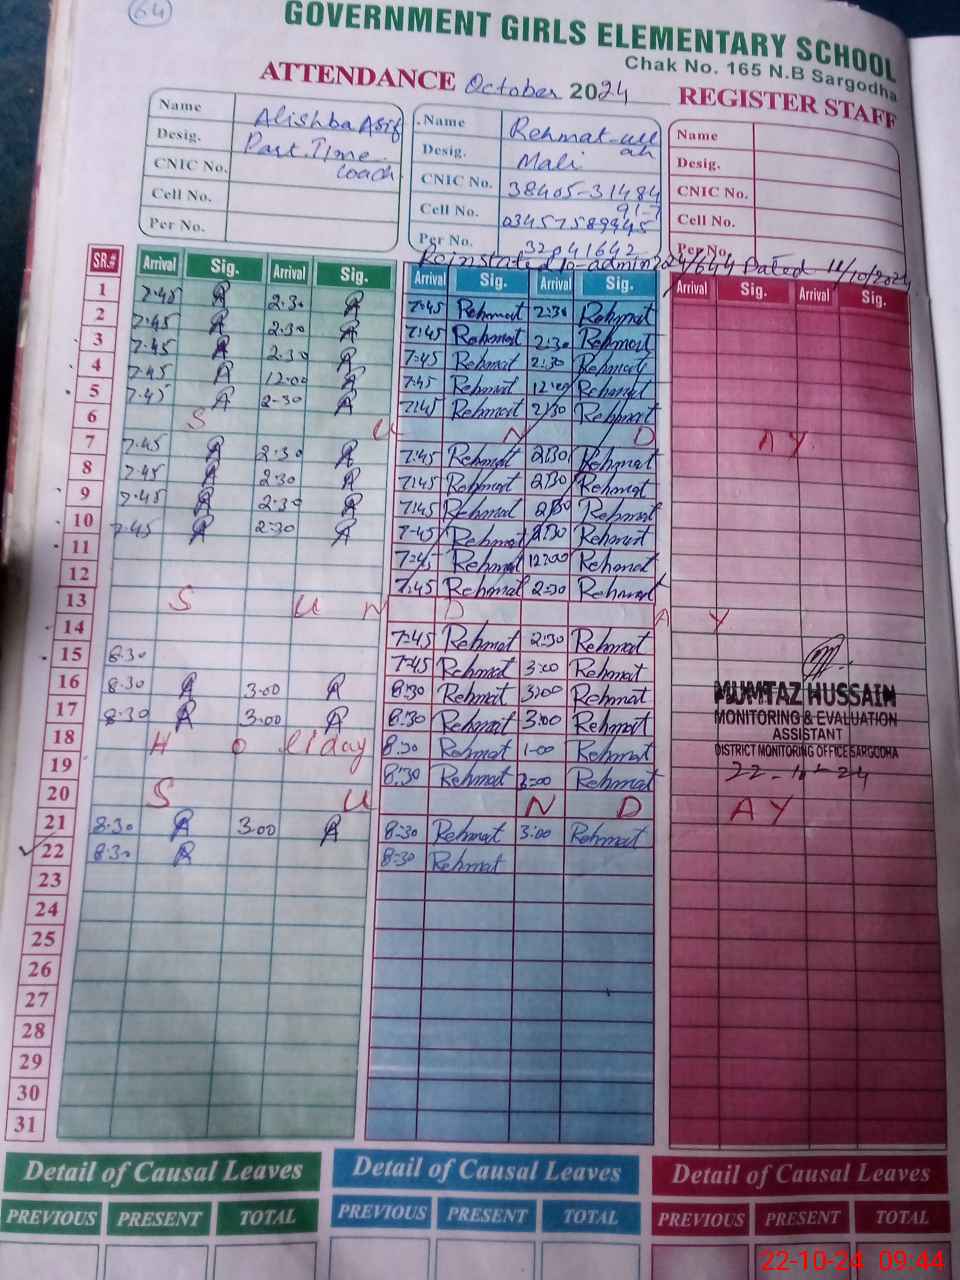 64
GOVERNMENT GIRLS ELEMENTARY SCHOOL
Chak No. 165 N.B Sargodha
ATTENDANCE October 2024 REGISTER STAFF
Name Alishba Asif
Desig. Part Time coach
CNIC No.
Cell No.
Per No.
Name Rehmat-ullah
Desig. Mali
CNIC No. 38405-3148491-
Cell No.
Per No. 32041642
Name
Desig.
CNIC No.
Cell No.
Per No.
Reinstated Dated
SR.# Arrival Sig. Arrival Sig. Arrival Sig. Arrival Sig. Arrival Sig. Arrival Sig.
1 7-45 A 2-30 A 7-45 Rehmat 2-30 Rehmat
2 7-45 A 2-30 A 7-45 Rehmat 2-30 Rehmat
3 7-45 A 2-30 A 7-45 Rehmat 2-30 Rehmat
4 7-45 A 12-00 A 7-45 Rehmat 12-00 Rehmat
5 7-45 A 2-30 A 7-45 Rehmat 2-30 Rehmat
6 S U N D A Y
7 7-45 A 2-30 A 7-45 Rehmat 2-30 Rehmat
8 7-45 A 2-30 A 7-45 Rehmat 2-30 Rehmat
9 7-45 A 2-30 A 7-45 Rehmat 2-30 Rehmat
10 7-45 A 2-30 A 7-45 Rehmat 2-30 Rehmat
11 7-45 Rehmat 12-00 Rehmat
12 7-45 Rehmat 2-30 Rehmat
13 S U N D A Y
14 7-45 Rehmat 2-30 Rehmat
15 8-30 7-45 Rehmat 3-00 Rehmat
16 8-30 A 3-00 A 8-30 Rehmat 3-00 Rehmat
17 8-30 A 3-00 A 8-30 Rehmat 3-00 Rehmat
18 Holiday 8-30 Rehmat 1-00 Rehmat
19 8-30 Rehmat 3-00 Rehmat
20 S U N D A Y
21 8-30 A 3-00 A 8-30 Rehmat 3-00 Rehmat
22 8-30 A 8-30 Rehmat
23
24
25
26
27
28
29
30
31
MUMTAZ HUSSAIN
MONITORING & EVALUATION
ASSISTANT
DISTRICT MONITORING OFFICE SARGODHA
22-10-24
Detail of Causal Leaves Detail of Causal Leaves Detail of Causal Leaves
PREVIOUS PRESENT TOTAL PREVIOUS PRESENT TOTAL PREVIOUS PRESENT TOTAL
22-10-24 09:44